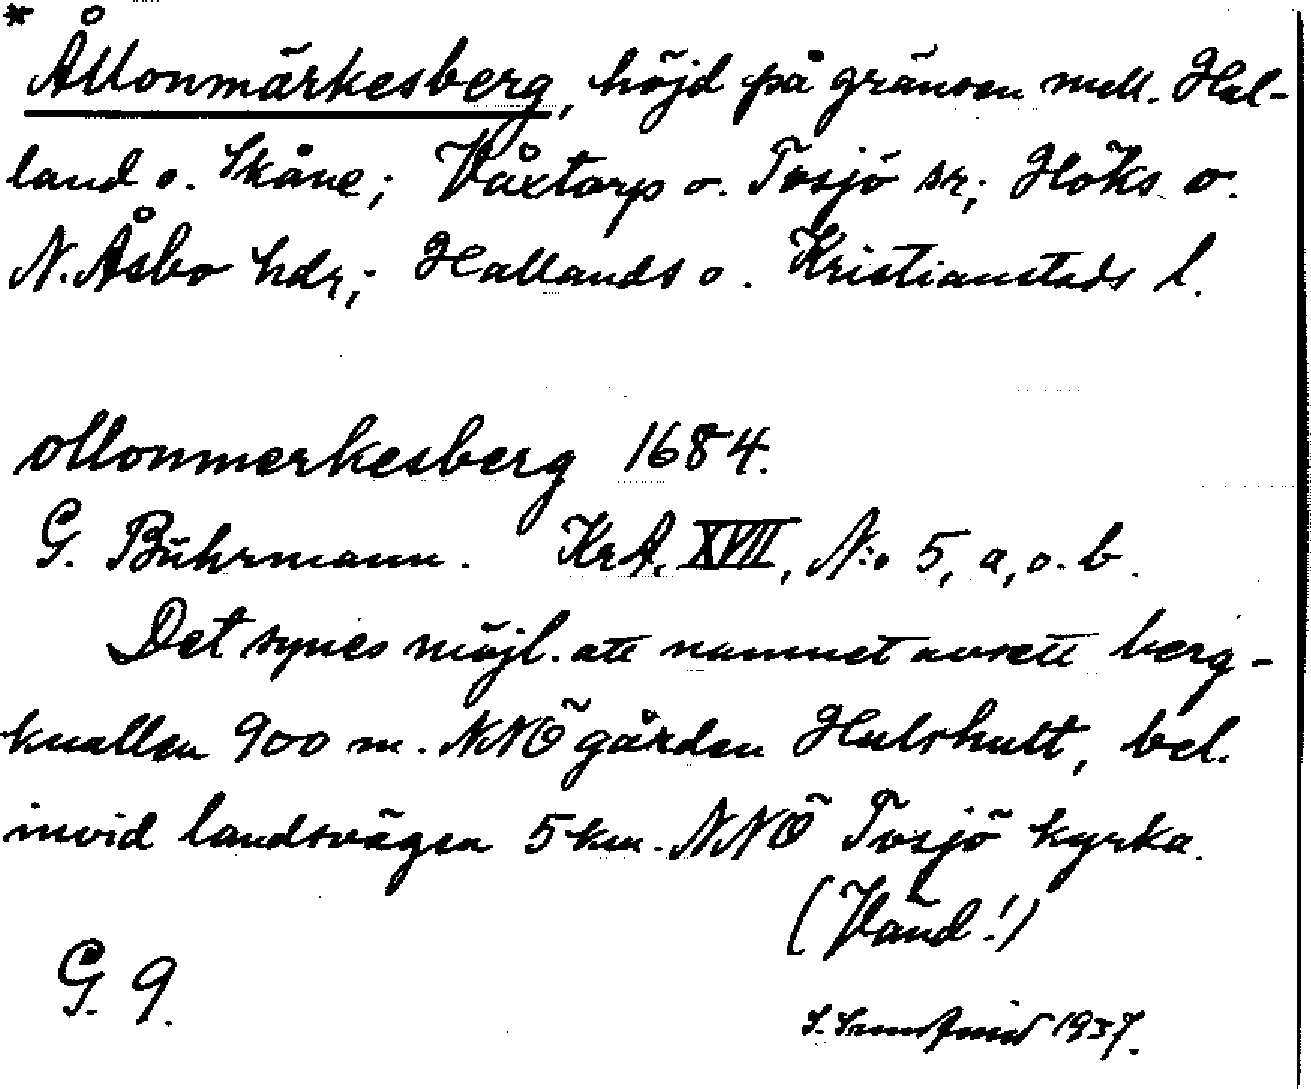 *
Ållonmärkesberg, höjd på gränsen mell. Hal-
land o. Skåne; Våxtorp o. Tosjö sr; Höks o.
N. Åsbo hdr; Hallands o. Kristianstads l.
ollonmerkesberg 1684.
G. Bührmann. KrA. XVII, N:o 5, a, o. b.
Det synes möjl. att namnet avsett berg-
knallen 900 m. NNÖ gården Hulshult, bel.
invid landsvägen 5 km. NNÖ Tosjö kyrka.
(Vänd!)
G. 9.
S. 1937.